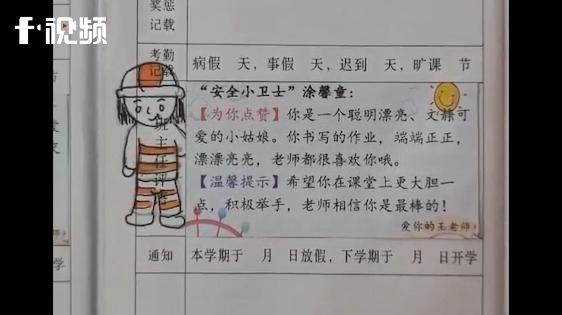 f视频
奖惩
记载
考勤
记载
病假 天，事假 天，迟到 天，旷课 节
“安全小卫士”涂馨童：
【为你点赞】你是一个聪明漂亮、文静可
爱的小姑娘。你书写的作业，端端正正，
漂漂亮亮，老师都很喜欢你哦。
【温馨提示】希望你在课堂上更大胆一
点，积极举手，老师相信你是最棒的！
爱你的王老师
班主任评语
通知
本学期于 月 日放假，下学期于 月 日开学
学